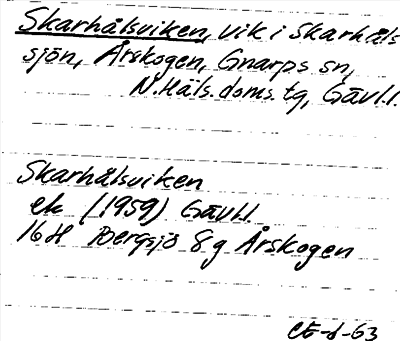 Skarhålsviken, vik i Skarhåls
sjön, Årskogen, Gnarps sn,
N.Häls.doms.tg, Gävl.l.
Skarhålsviken
ek (1959) Gävl.l.
16H Bergsjö 8g Årskogen